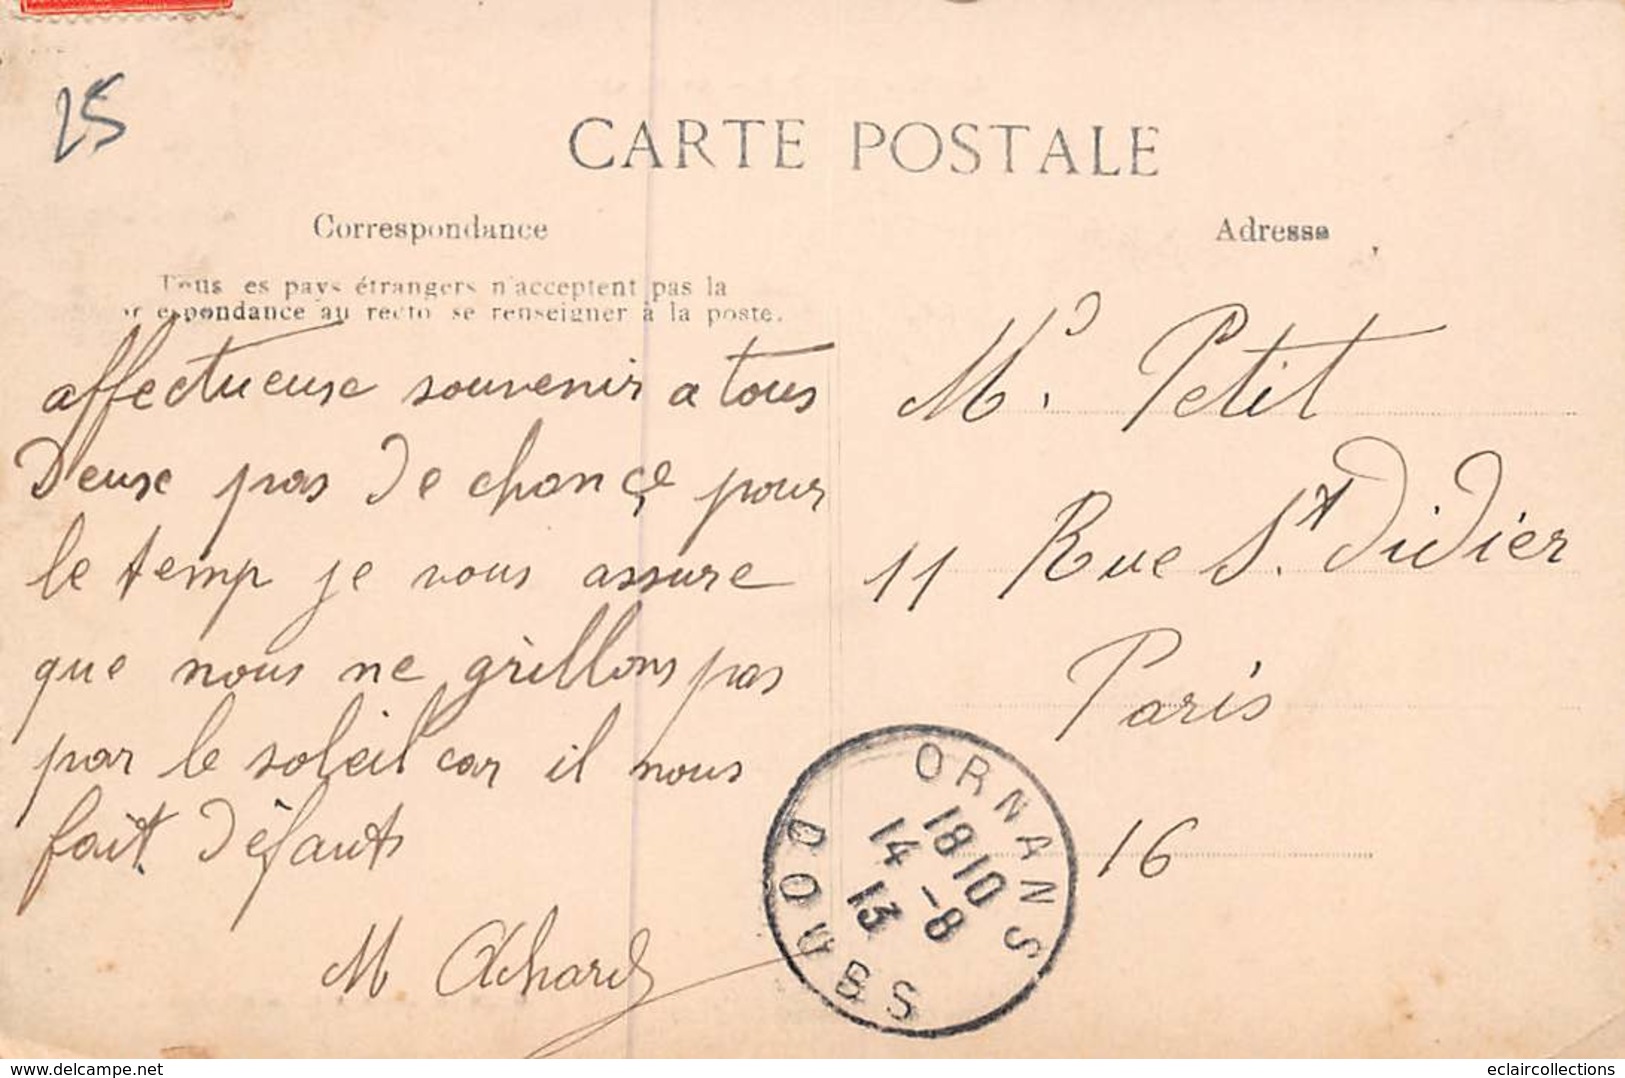 25
CARTE POSTALE
Correspondance
Adresse
Tous es pays étrangers n'acceptent pas la
espondance au recto se renseigner à la poste.
affectueuse souvenir a tous
Deuse pas de chançe pour
le temp je vous assure
que nous ne grillons pas
par le soleil car il nous
fait défauts
M Achard
Mr. Petit
11 Rue St. Didier
Paris
16
ORNANS
18 10
14 -8
13
DOUBS
www.delcampe.net
eclaircollections